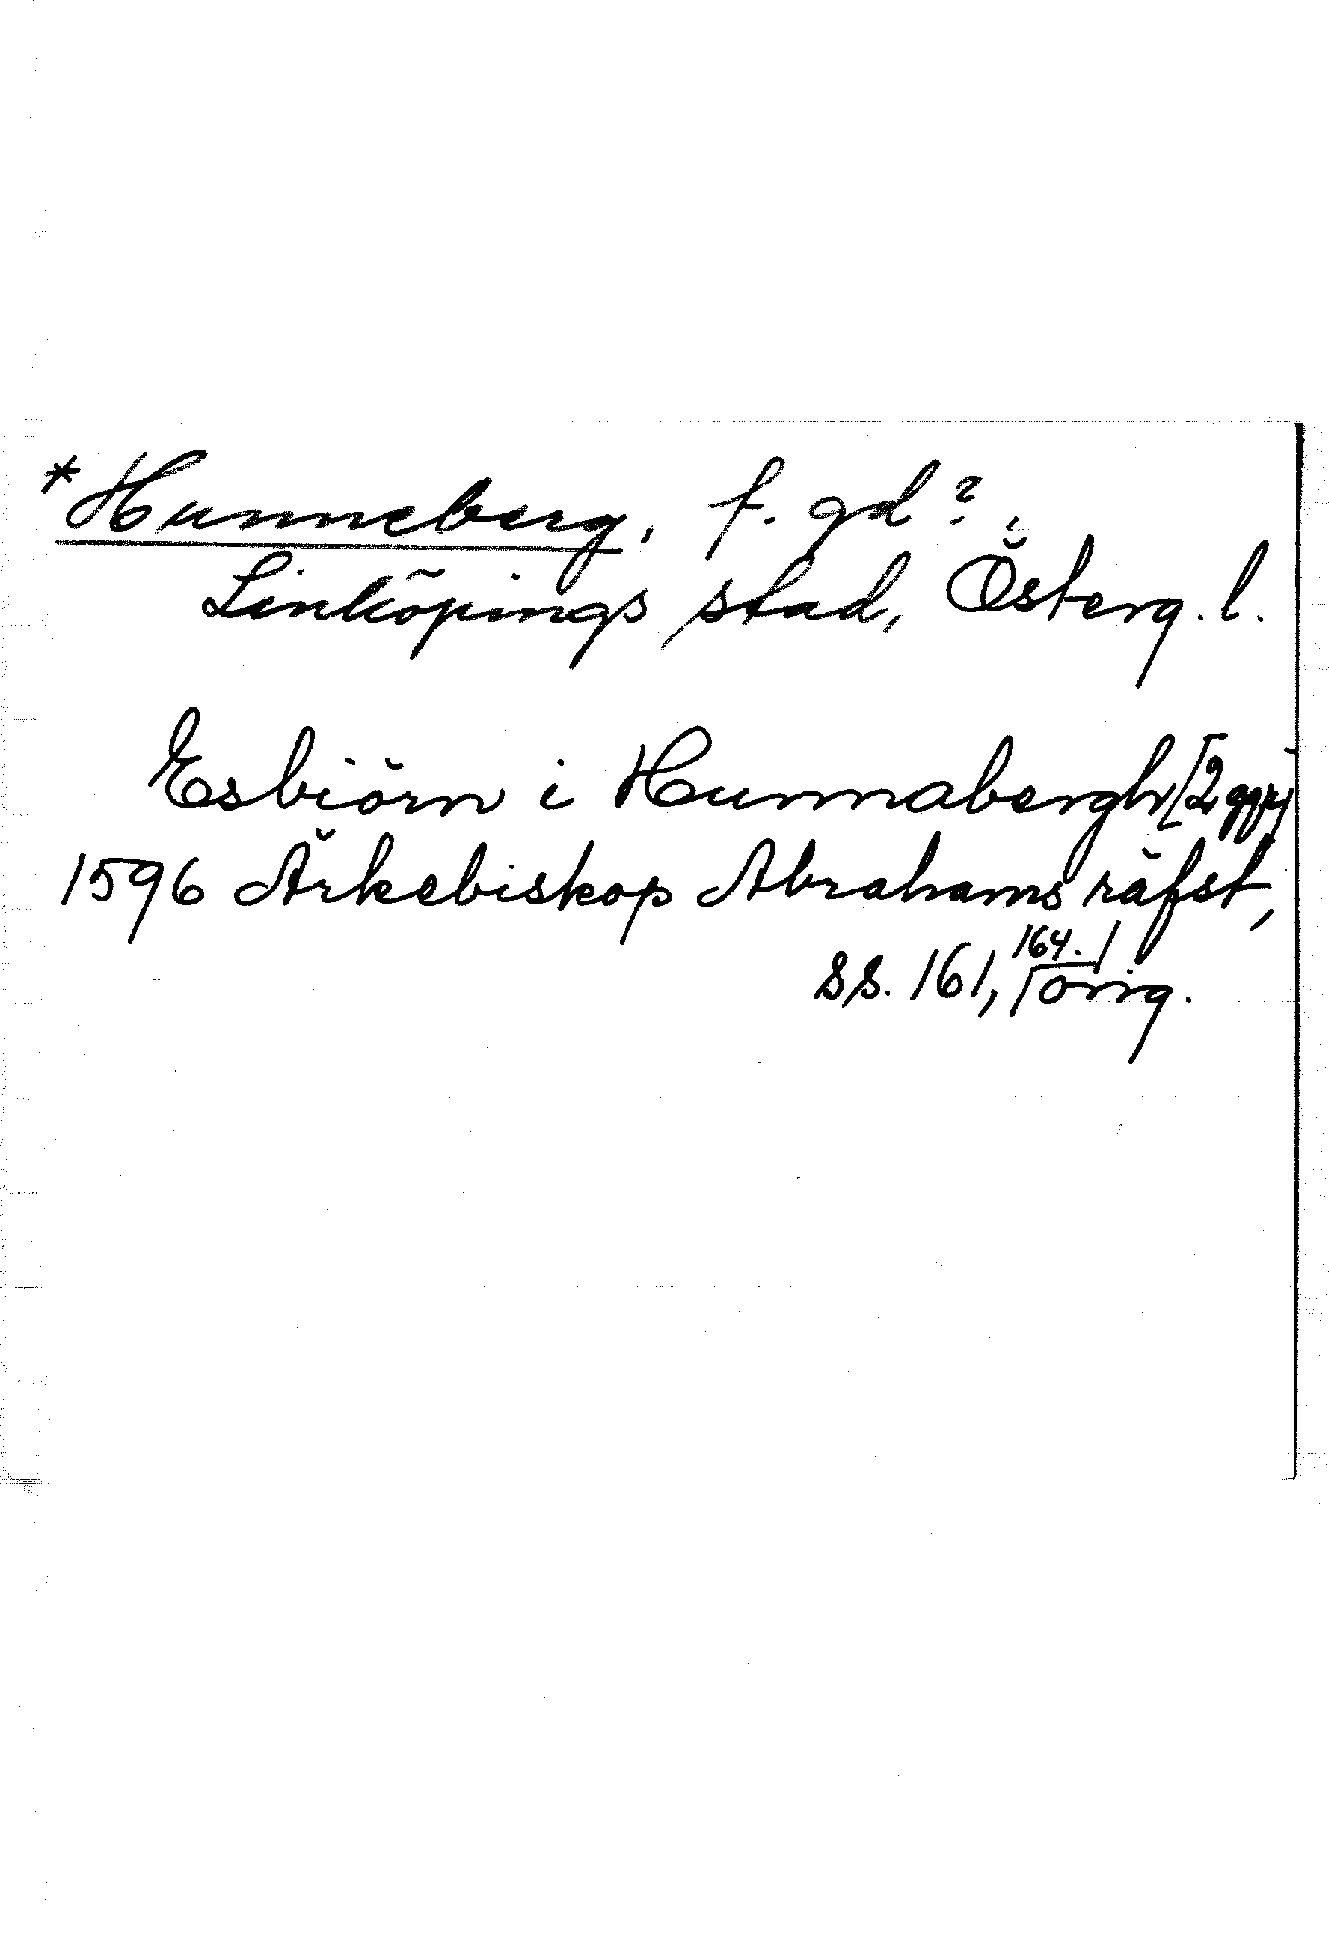 *Hunneberg, f. gd?,
Linköpings stad, Österg. l.
Esbiörn i Hunnabergh [2 ggr]
1596 Ärkebiskop Abrahams räfst,
ss. 161, 164. orig.